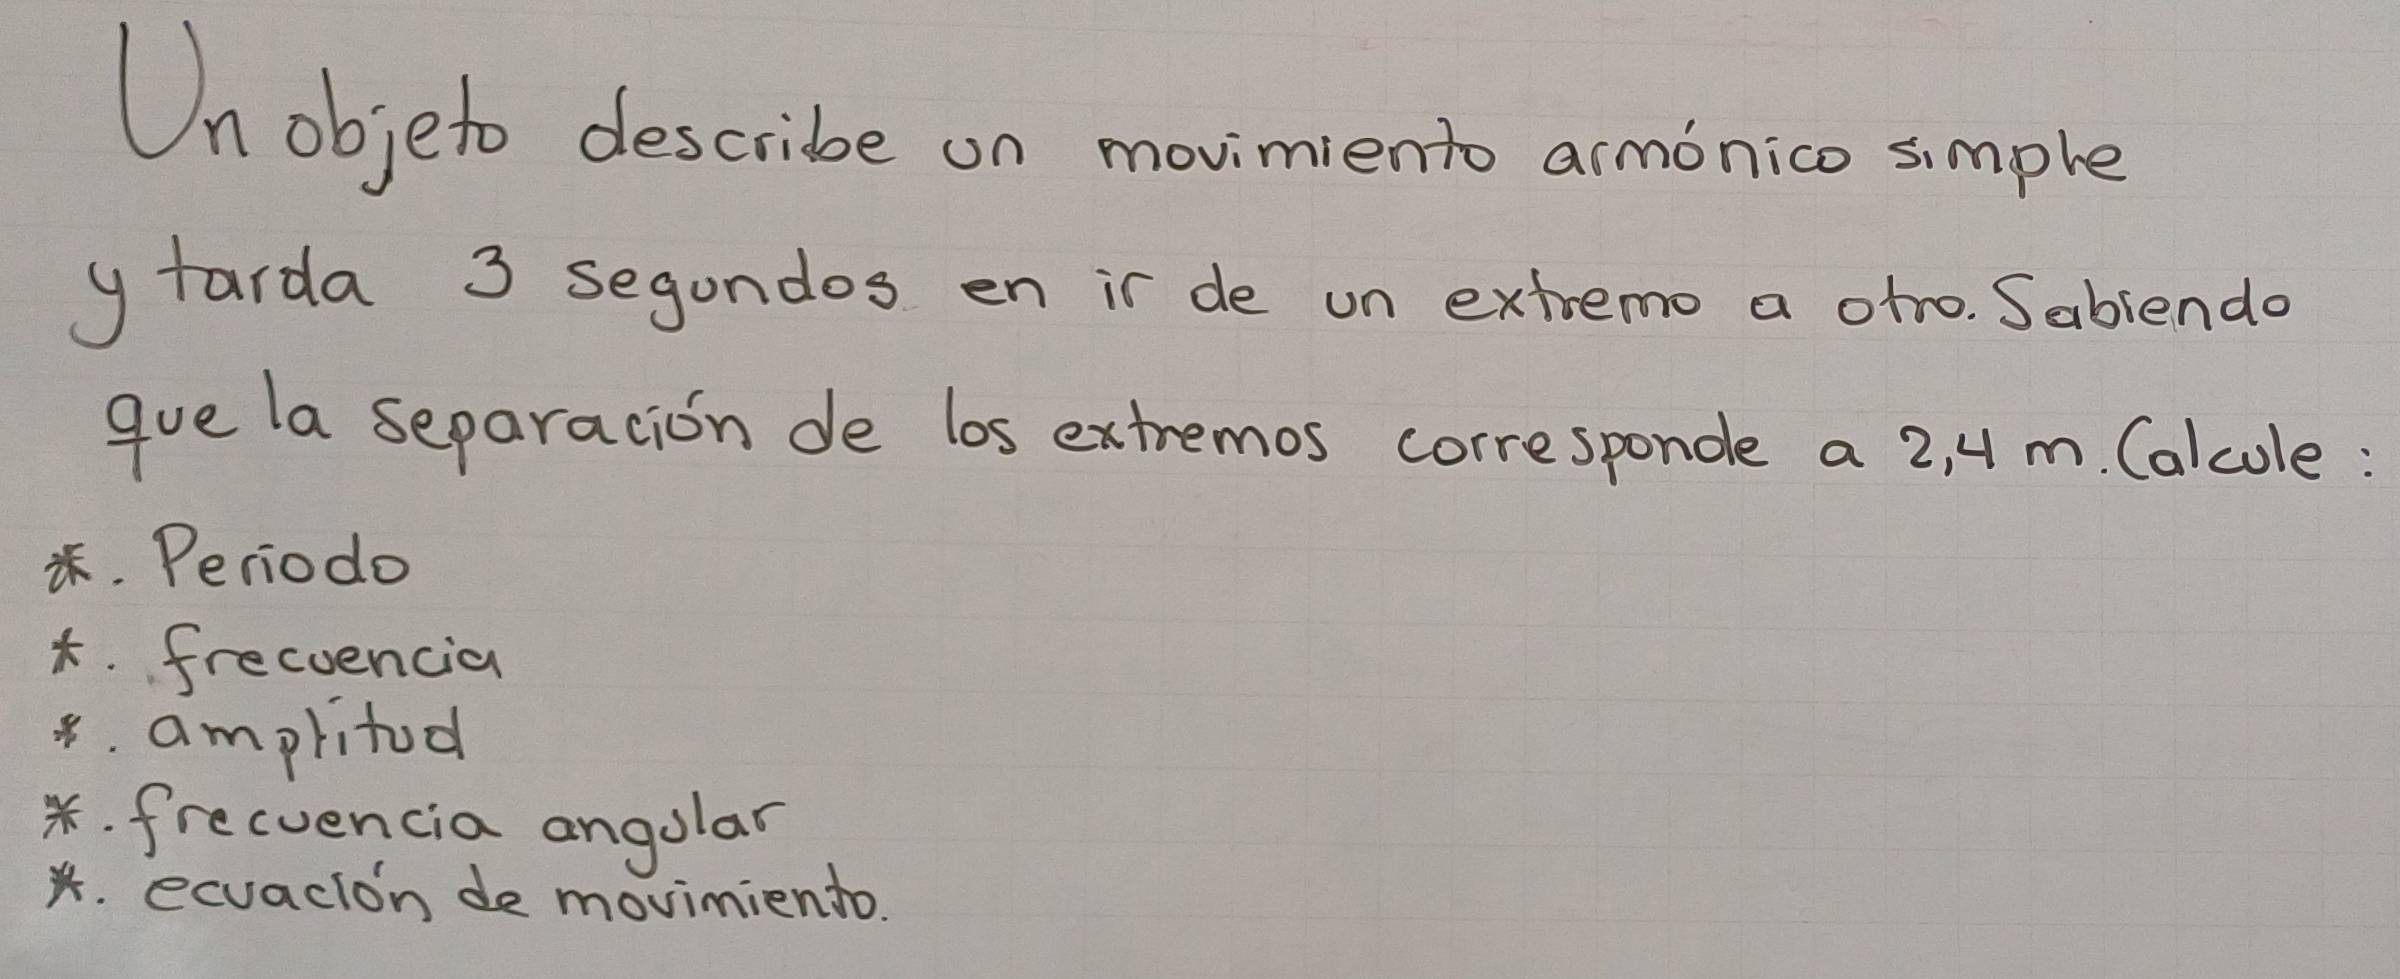 Un objeto describe un movimiento armónico simple
y tarda 3 segundos en ir de un extremo a otro. Sabiendo
que la separación de los extremos corresponde a 2,4 m. Calcule:
*. Periodo
*. frecuencia
*. amplitud
*. frecuencia angular
*. ecuación de movimiento.